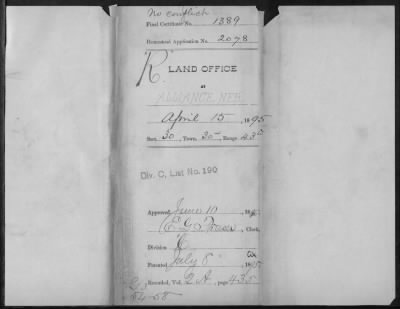 No conflict
Final Certificate No. 1389
Homestead Application No. 2078
"R"
LAND OFFICE
at
ALLIANCE, NEB.
April 15, 1895
Sect. 30, Town. 25, Range 43
Div. C, List No. 190
Approved June 10, 189
E G, Clerk,
Division "C"
Patented July 8
Recorded, Vol. 2 A, page 435